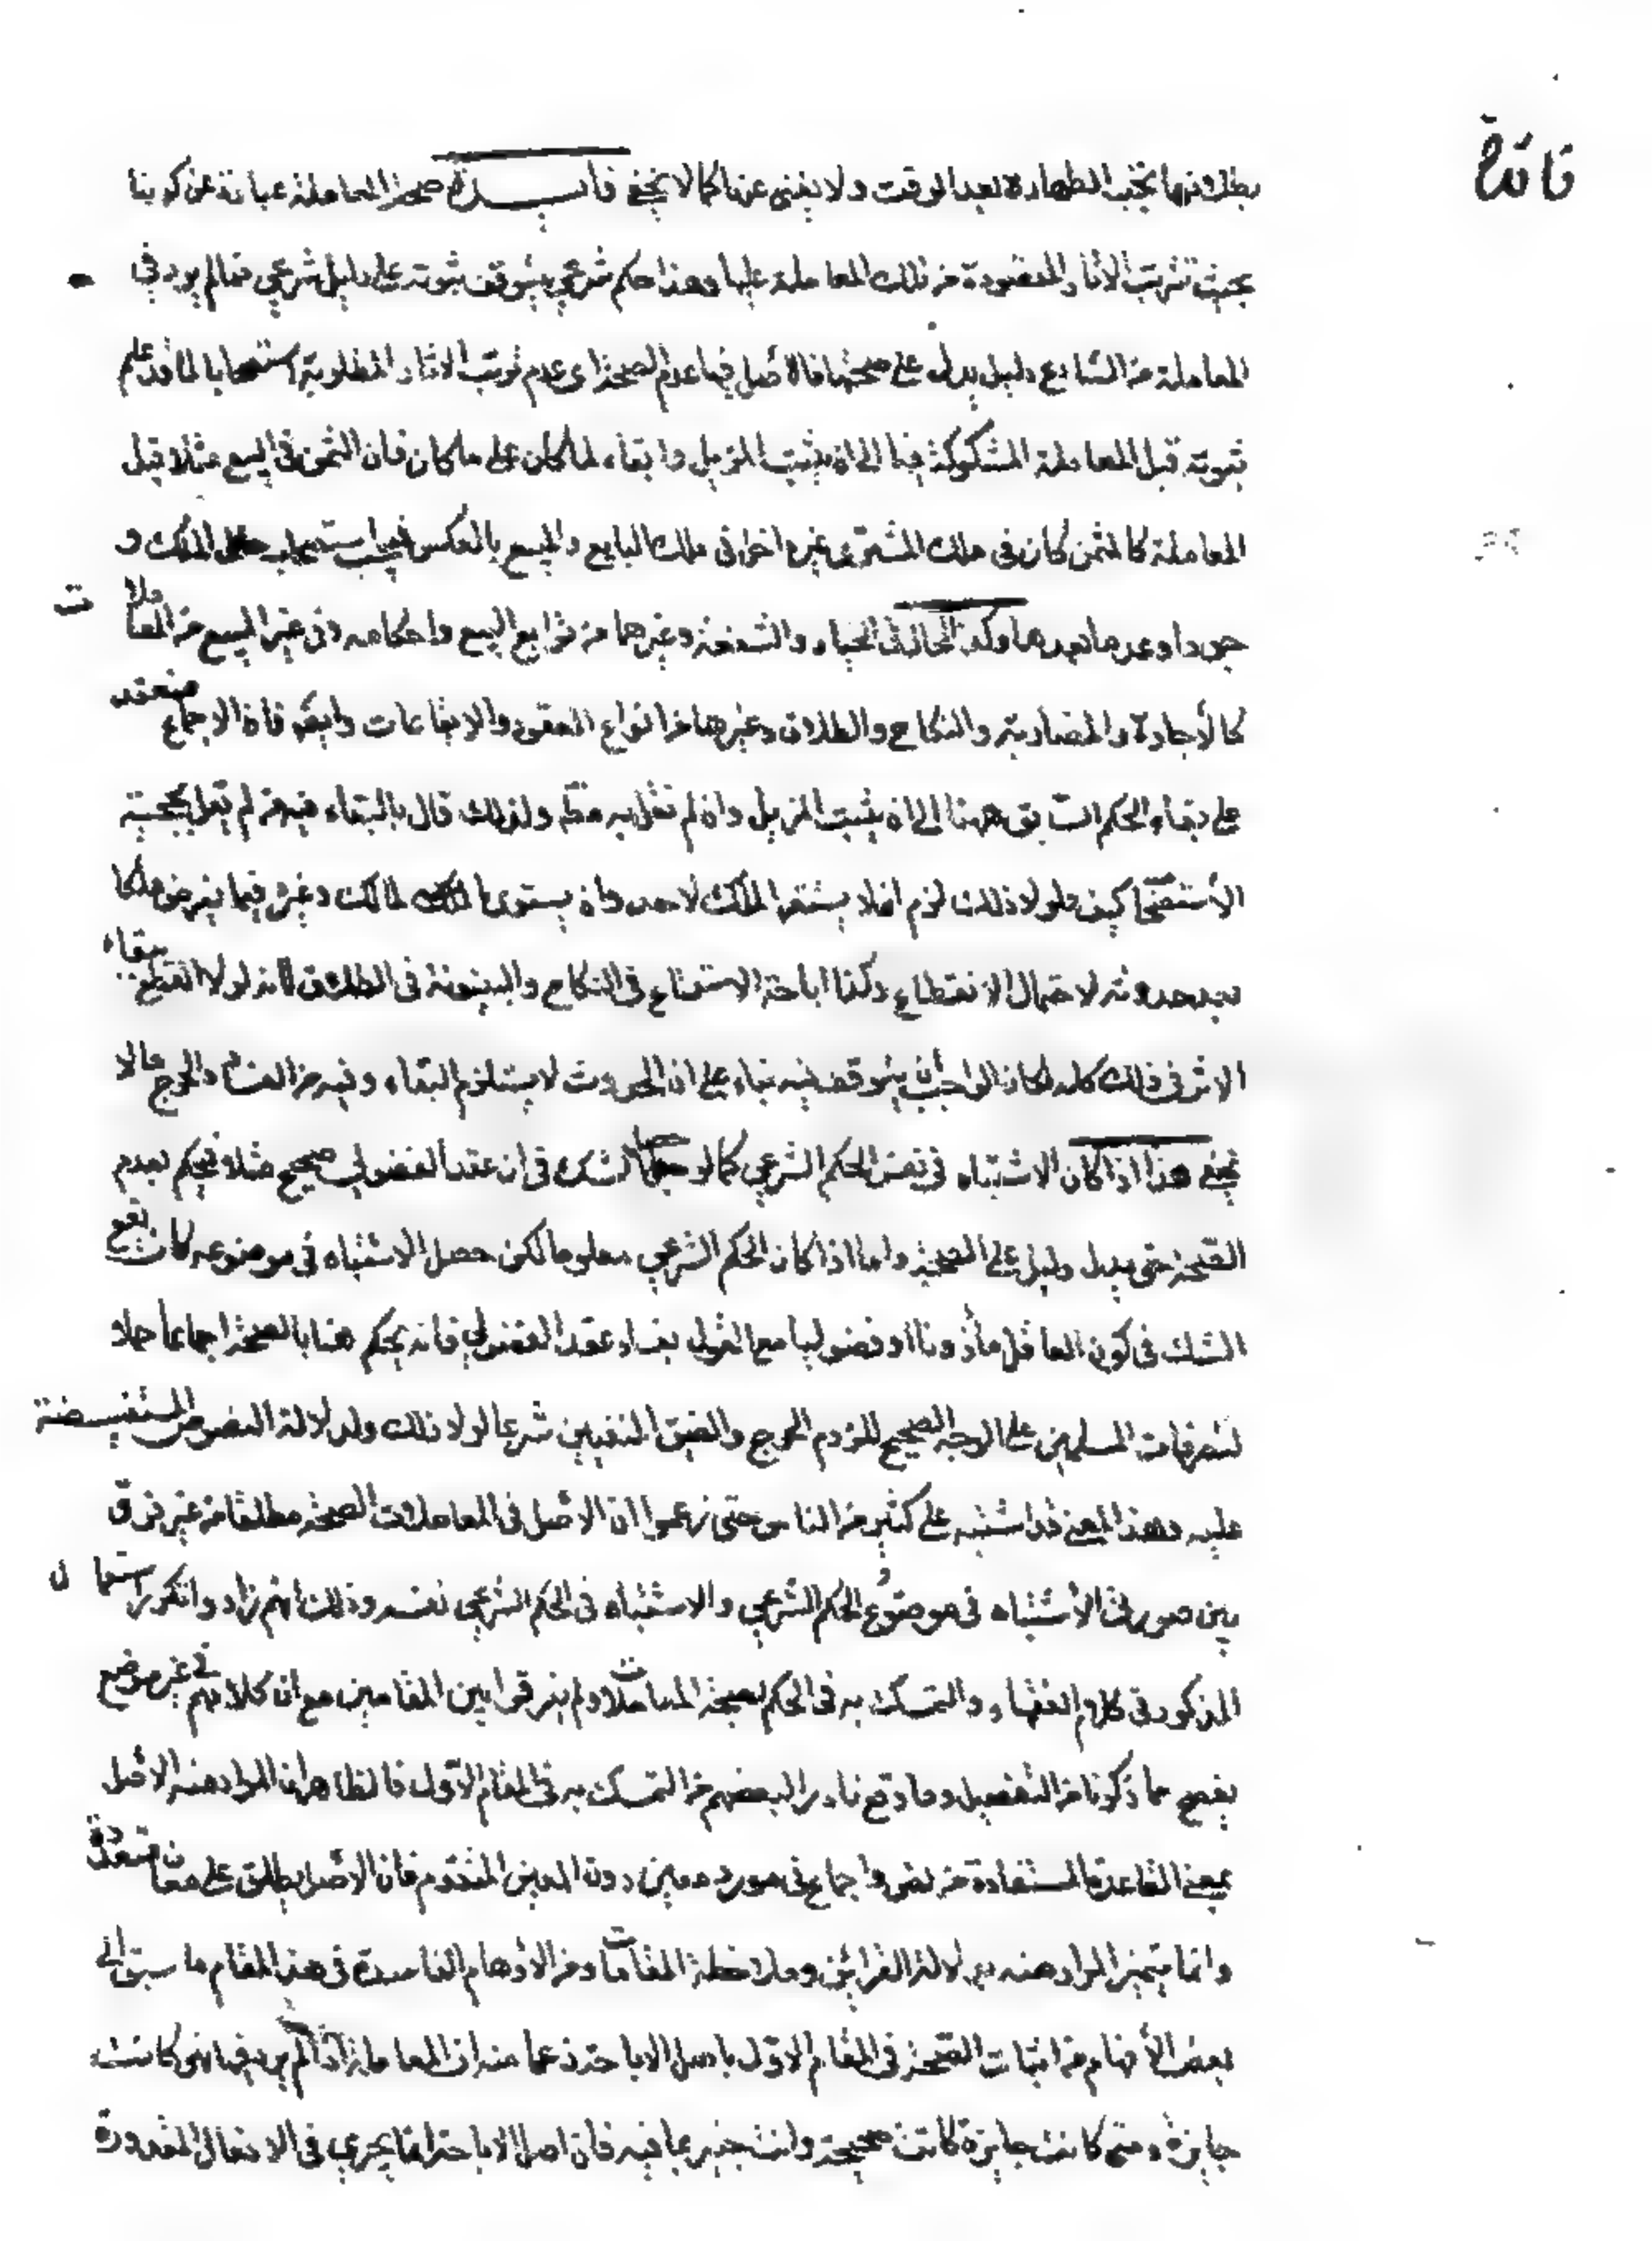 فائدة
بطلانها يجب الطهارة بعد الوقت ولا يغني عن ذا كما لا يخفى فائدة صحة المعاملة عبارة عن كونها
بحيث تترتب الآثار المقصودة من تلك المعاملة عليها وهذا حكم شرعي يتوقف ثبوته على دليل شرعي فما لم يرد في
المعاملة من الشارع دليل يدل على صحتها فالأصل فيها عدم الصحة اى عدم ترتب الاثار المطلوبة استصحابا لما قد علم
ثبوته قبل المعاملة المشكوكة فيها الى ان يثبت المزيل وابقاء لما كان على ما كان فان الثمن في البيع مثلا قبل
المعاملة كالمثمن كان في ملك المشترى غير داخل في ملك البايع والمبيع بالعكس فيجب استصحاب حال الملك و
جودا وعدما بعدها وكذا الحال في الخيار والشفعة وغيرهما من توابع البيع واحكامه وفي غير البيع من المعاملات
كالأجارة والمضاربة والنكاح والطلاق وغيرها من انواع العقود والايقاعات وايضا فان الاجماع منعقد
على بقاء الحكم السابق ههنا الى ان يثبت المزيل وان لم نقل به مطلقا ولذلك قال بالبقاء فيه من لم يقل بحجية
الأستصحاب كيف ولولا ذلك لزم ان لا يستقر الملك لاحد وان يستوى المالك وغيره فيما يفرض ملكا
بعد حدوثه لاحتمال الانقطاع وكذا اباحة الاستمتاع في النكاح والبينونة في الطلاق فانه لولا القطع ببقاء
الاثر في ذلك كله لكان الواجب ان يتوقف فيه بناء على ان الحدوث لا يستلزم البقاء وفيه من الفساد والحرج ما لا
يخفى هذا اذا كان الاشتباه في نفس الحكم الشرعي كما لو حصل الشك في ان عقد الفضولي صحيح مثلا فيحكم بعدم
الصحة حتى يدل دليل على الصحة واما اذا كان الحكم الشرعي معلوما لكن حصل الاشتباه في موضوعه كان يقع
الشك في كون العاقد مأذونا او فضوليا مع القول بفساد عقد الفضولي فانه يحكم هنا بالصحة اجماعا حملا
لتصرفات المسلمين على الوجه الصحيح للزوم الحرج والضيق المنفيين شرعا لولا ذلك ولدلالة النصوص المستفيضة
عليه وهذا المعنى قد اشتبه على كثير من الناس حتى زعموا ان الأصل في المعاملات الصحة مطلقا من غير فرق
بين صورة الأشتباه في موضوع الحكم الشرعي والاشتباه في الحكم الشرعي نفسه وذلك انهم رأوا تكرر استعمال
المذكور في كلام الفقهاء والتمسك به في الحكم بصحة المعاملات ولم يفرقوا بين المقامين مع ان كلامهم في غير موضع
يفصح عما ذكرنا من التفصيل وما وقع نادرا لبعضهم من التمسك به في المقام الأول فالظاهر ان المراد منه الأصل
بمعنى القاعدة المستفادة من نص واجماع في مورد معين دون المعنى المتقدم فان الأصل يطلق على معان متعددة
وانما يتميز المراد منه بدلالة القرائن وملاحظة المقامات ومن الأوهام الفاسدة في هذا المقام ما سبق الى
بعض الأفهام من اثبات الصحة في المقام الاول باصل الاباحة زعما منه ان المعاملة اذا لم يرد فيها نهى كانت
جايزة ومتى كانت جايزة كانت صحيحة وانت خبير بما فيه فان اصل الاباحة انما يجري في الافعال المقدورة